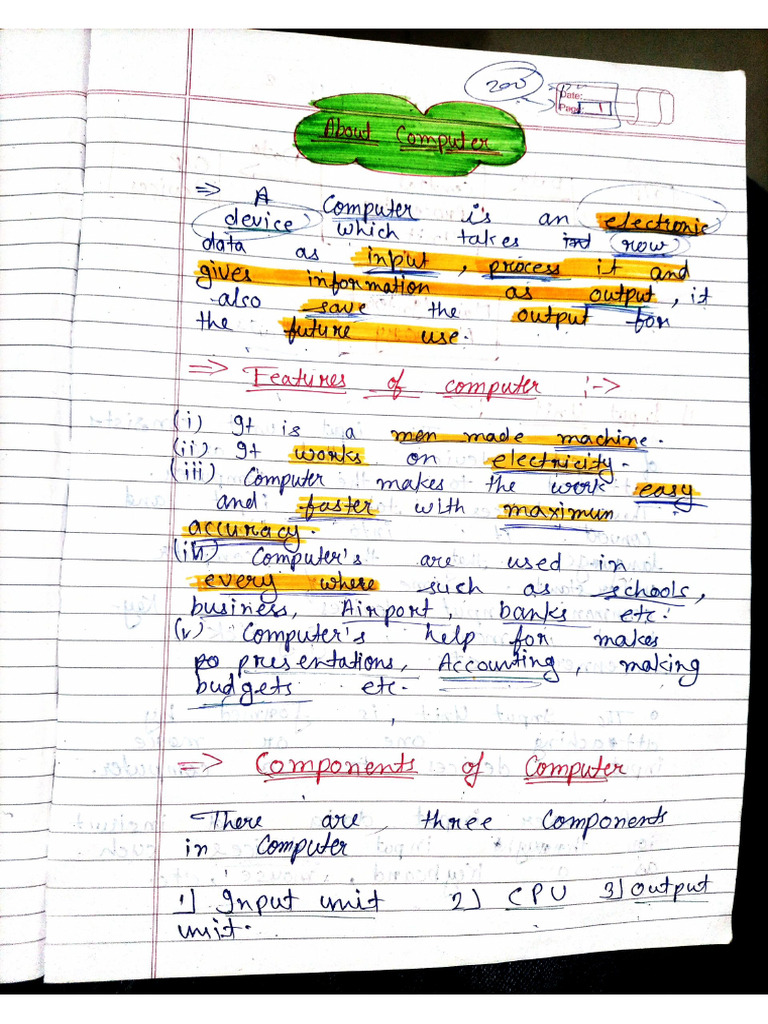 200
Date:
Page: 1
About Computer
⇒ A Computer is an electronic
device which takes row
data as input, process it and
gives information as output, it
also save the output for
the future use.
⇒ Features of computer :->
(i) It is a men made machine.
(ii) It works on electricity.
(iii) Computer makes the work easy
and faster with maximum
accuracy.
(iv) Computer's are used in
every where such as schools,
business, Airport, banks etc.
(v) Computer's help for makes
po presentations, Accounting, making
budgets etc.
⇒ Components of Computer
There are three components
in Computer
1) Input unit 2) CPU 3) Output
unit.